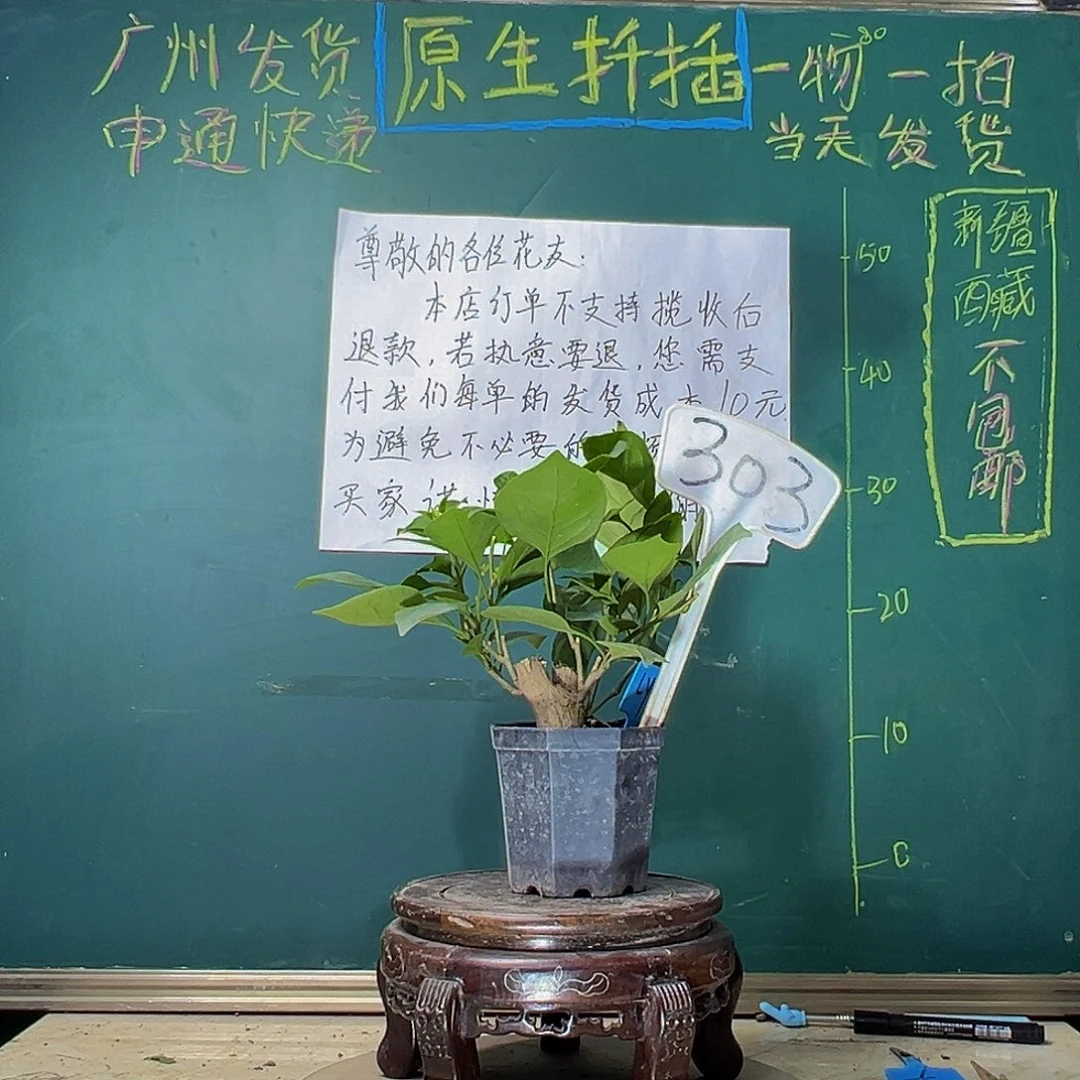 广州发货
申通快递
原生扦插
一物一拍
当天发货
尊敬的各位花友:
本店订单不支持揽收后
退款,若执意要退,您需支
付我们每单的发货成本10元
为避免不必要的
买家请
303
新疆
西藏
不
包
邮
50
40
30
20
10
0